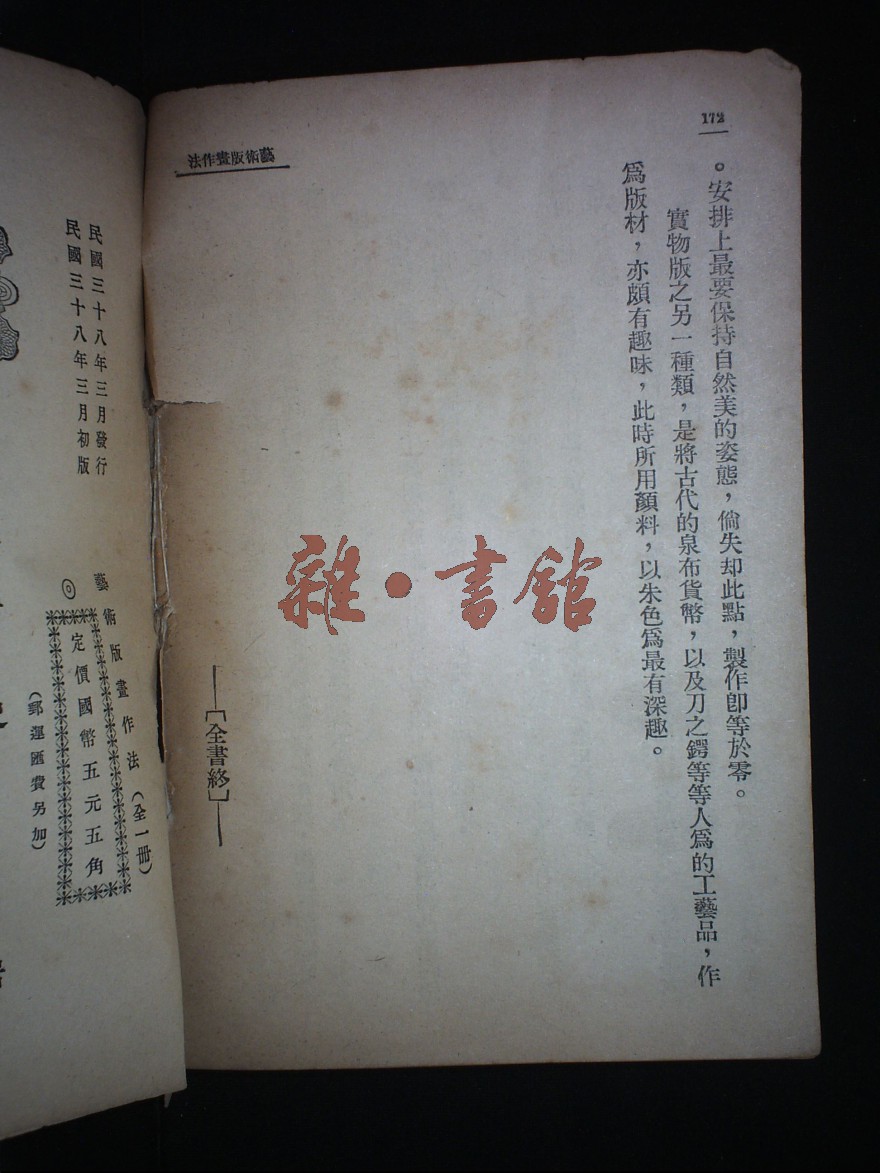 172
藝術版畫作法
。安排上最要保持自然美的姿態，倘失却此點，製作卽等於零。
實物版之另一種類，是將古代的泉布貨幣，以及刀之鍔等等人爲的工藝品，作
爲版材，亦頗有趣味，此時所用顏料，以朱色爲最有深趣。
—[全書終]—
雜·書館
民國三十八年三月發行
民國三十八年三月初版
藝術版畫作法（全一冊）
◎
定價國幣五元五角
（郵運匯費另加）